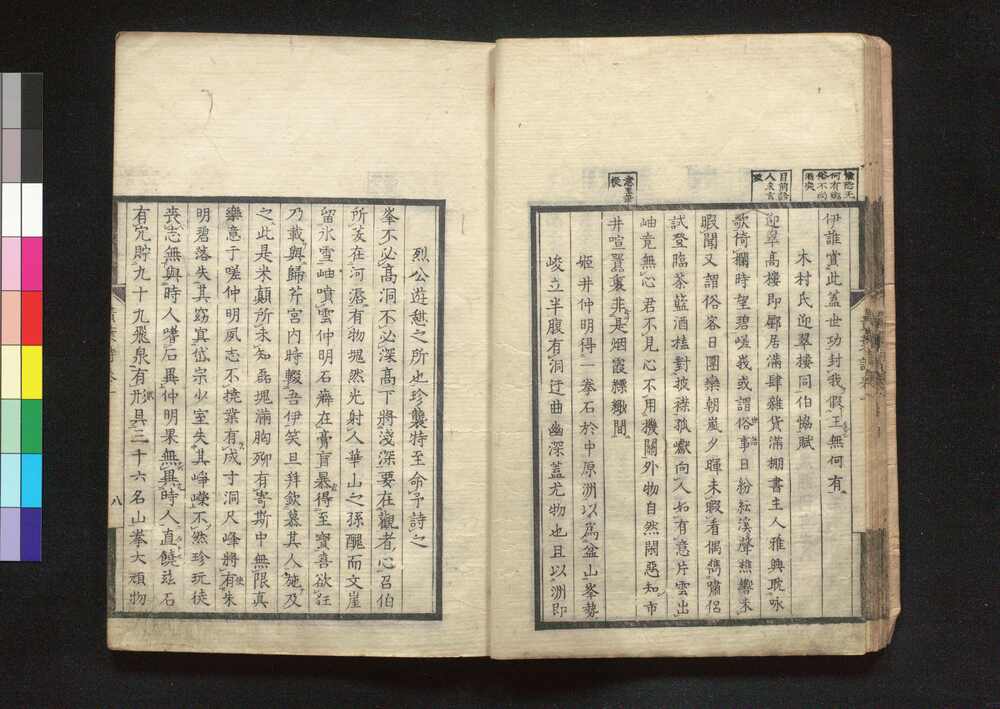 伊誰實此蓋世功封我假王無何有
木村氏迎翠接同伯恊賦
迎翠髙樓即酈居滿肆雜貨滿棚書主人雅興耽咏
歌倚欄時望碧嵯峩或謂俗事日紛紜溪聲樵響未
暇聞又謂俗客日團欒朝嵐夕暉未暇看偶儁嘯侶
試登臨茶藍酒榼對披襟孤巘向人如有意片雲出
岫竟無心君不見心不用機關外物自然閑惡知市
井喧囂裏非是烟霞縹緲間
姬井仲明得一拳石於中原洲以爲盆山峯勢
峻立半腹有洞迂曲幽深蓋尤物也且以洲即
烈公遊憩之所也珍襲特至命予詩之
峯不必髙洞不必深髙下將淺深要在觀者心召伯
所茇在河漘有物塊然光射人華山之孫醜而文崖
留氷雪岫噴雲仲明石癖在膏肓暴得至寳喜欲狂
乃載與歸芹宮内時輟吾伊笑且拜欽慕其人施及
之此是米顛所未知磊塊滿胸聊有寄斯中無限真
樂意于嗟仲明夙志不撓業有成寸洞尺峰將有朱
明碧落失其窈冥岱宗少室失其崢嶸不然珍玩徒
喪志無與時人嗜石異仲明果無異時人直饒玆石
有宂貯九十九飛泉有形具三十六名山拳大頑物
八